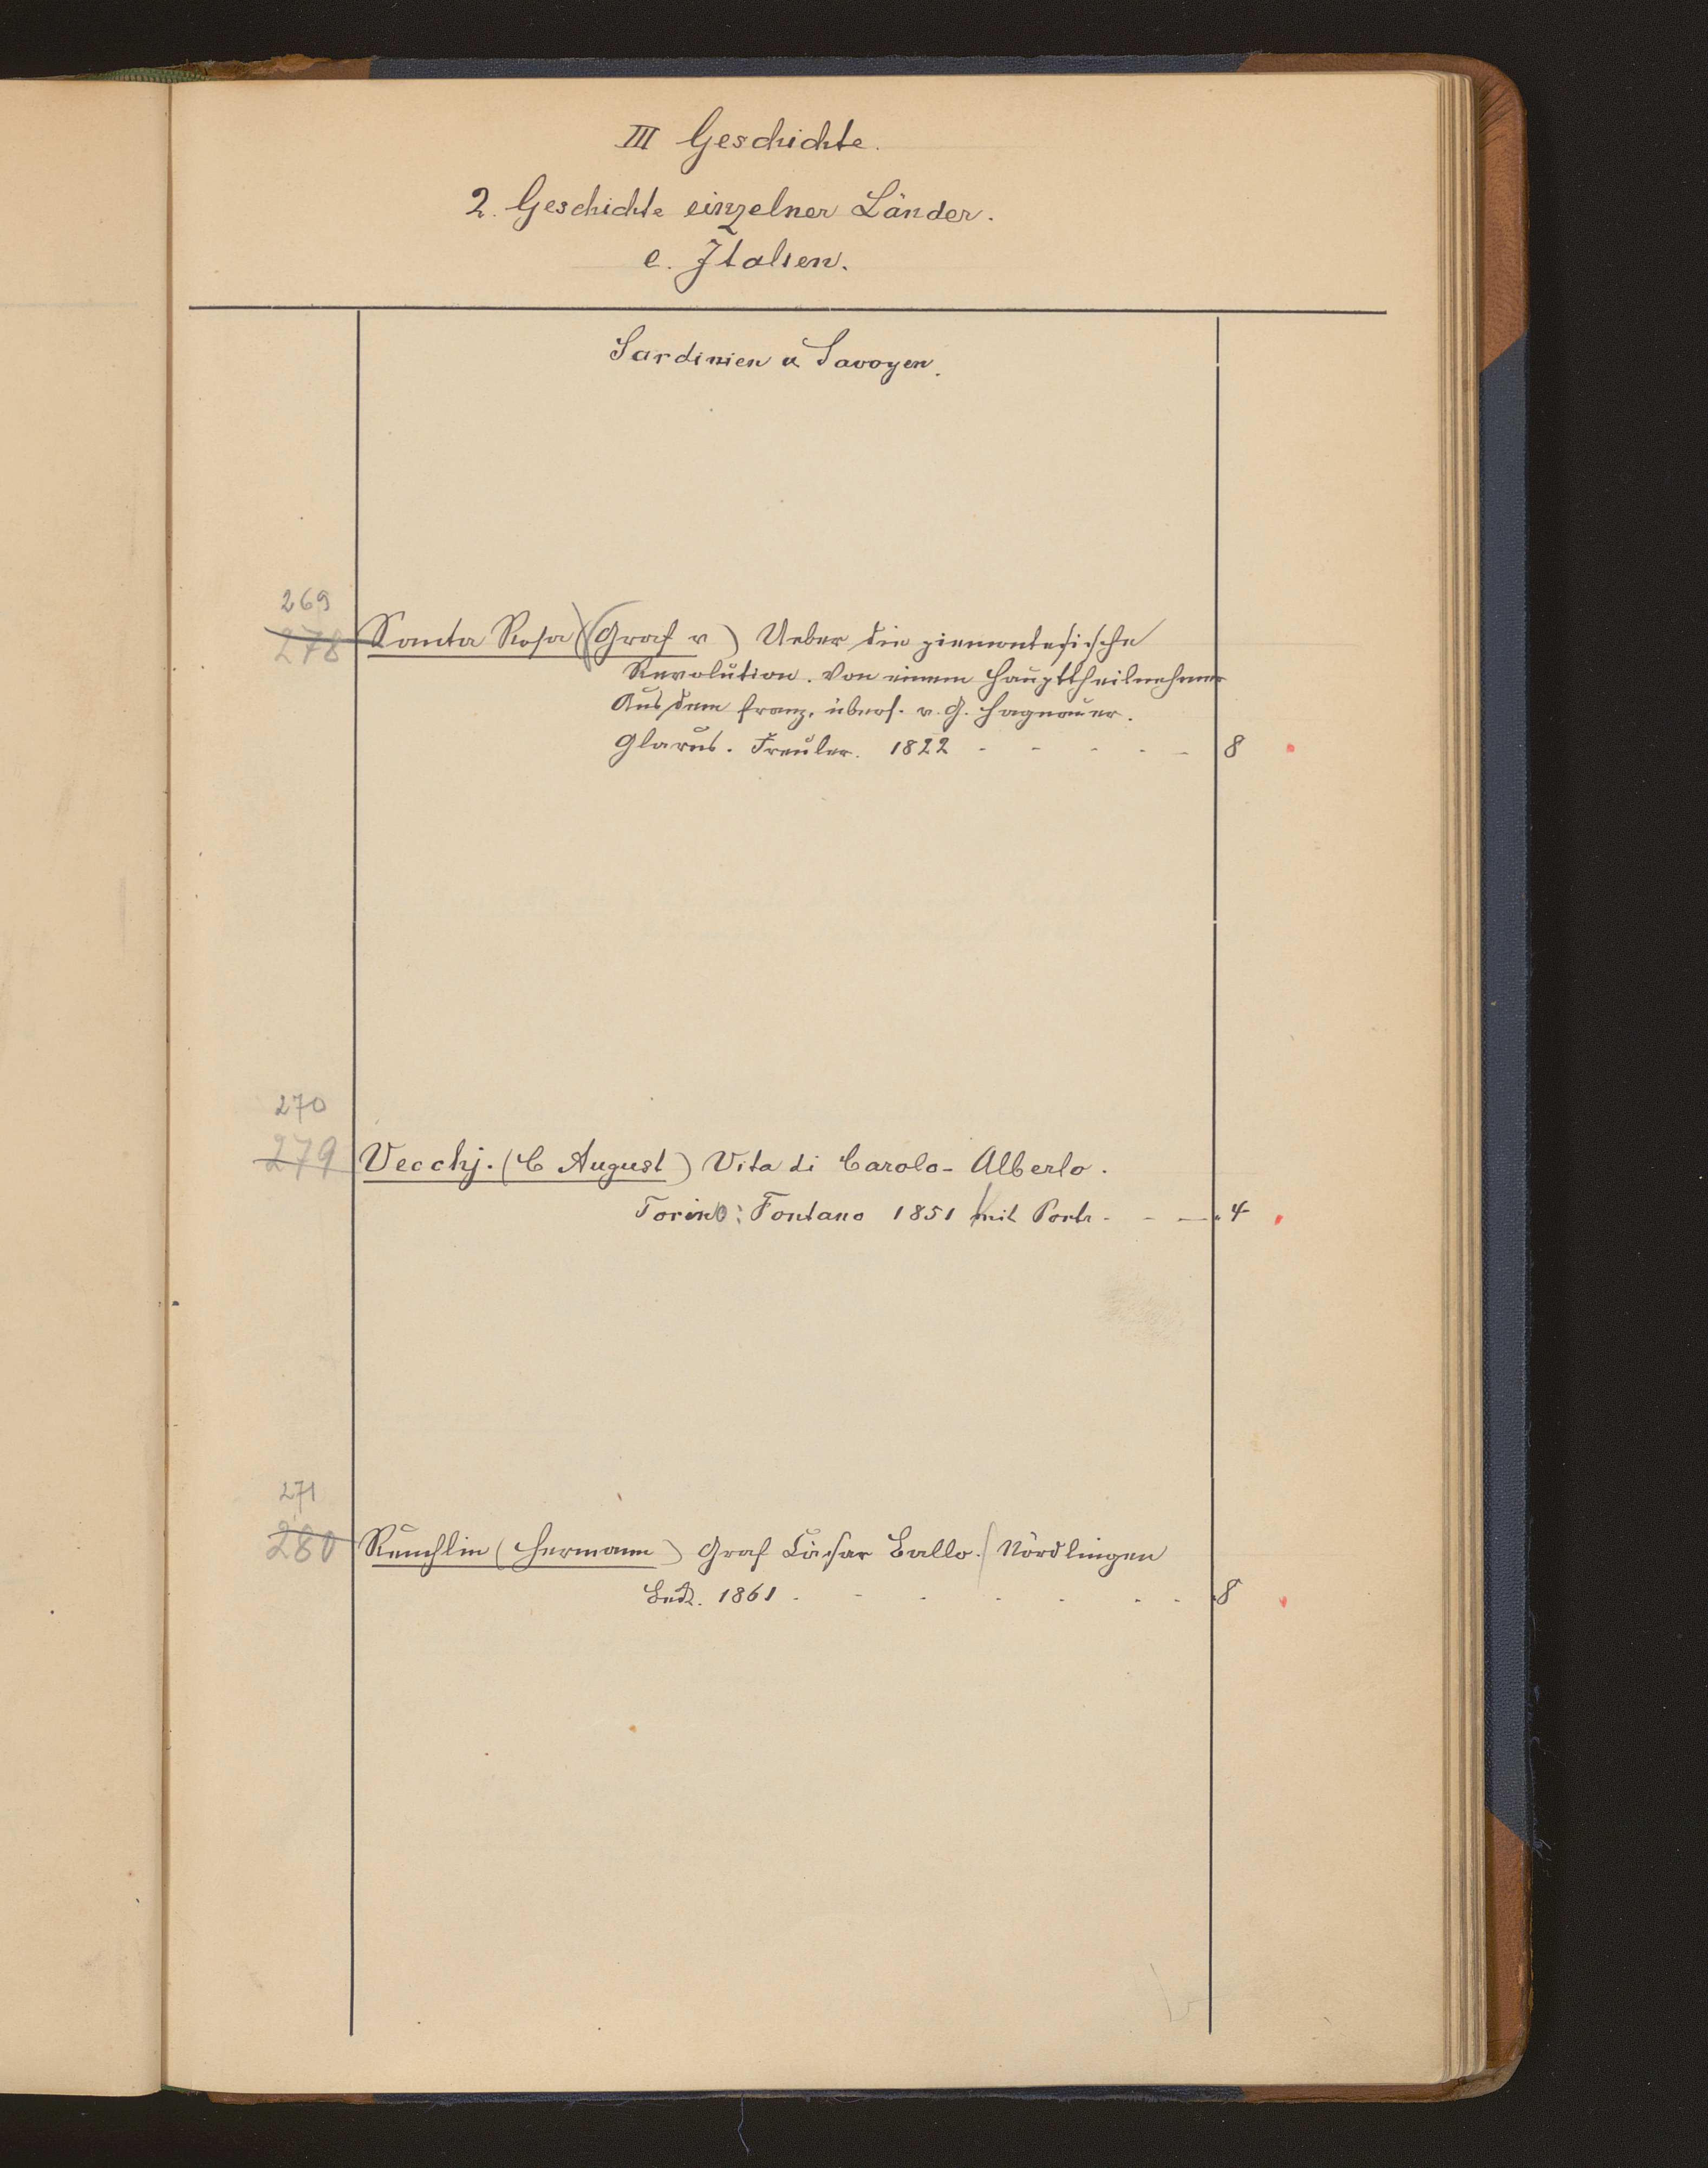 III Geschichte.
2. Geschichte einzelner Länder.
e. Italien.
Sardinien u Savoyen.
269
278 Santa Rosa (Graf v) Ueber die piemontesische
Revolution. Von einem Haupttheilnehmer
Aus dem franz. übers. v. G. Hagnauer.
Glarus. Freuler. 1822 - - - - - 8
270
279 Vecchj. (C August) Vita di Carolo-Alberto.
Torino: Fontano 1851 mit Portr. - - - 4
271
280 Reuchlin (Hermann) Graf Cäsar Balbo. Nördlingen
Beck. 1861 - - - - - - - 8